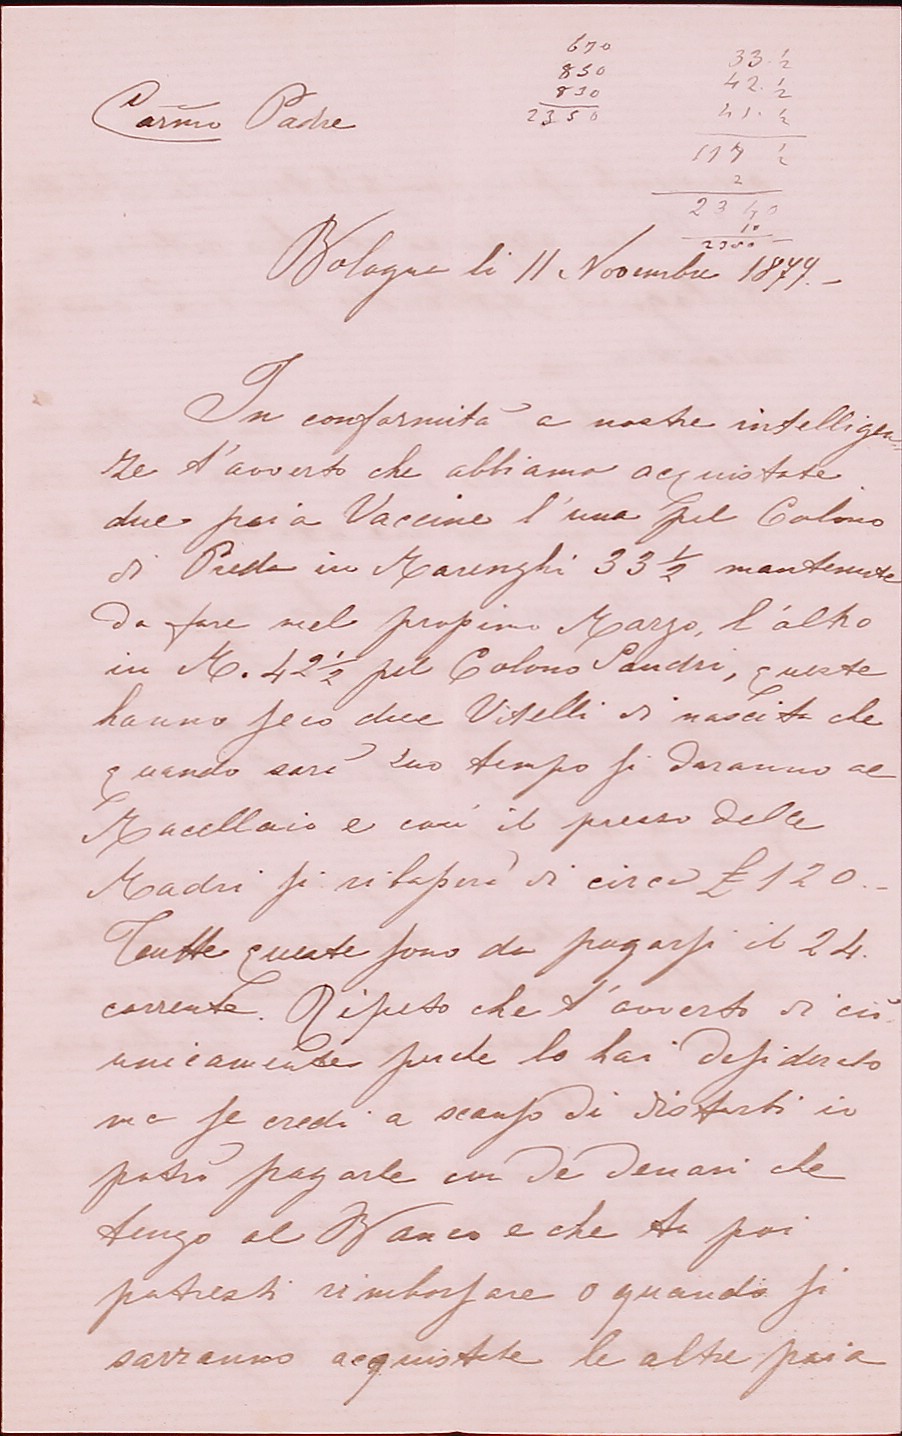 670
830
850
2350
33.½
42.½
41.½
117 ½
2
2340
10
2350
Carmo Padre
Bologna li 11 Novembre 1879.-
In conformità a nostre intelligen=
ze t'avverto che abbiamo acquistate
due paia Vaccine l'una pel Colono
di Preda in Marenghi 33½ mantenute
da fare nel prossimo Marzo, l'altro
in M. 42½ pel Colono Sandri, queste
hanno seco due Vitelli di nascita che
quando sarà suo tempo si daranno al
Macellaio e così il prezzo delle
Madri si ribasserà di circa £ 120.-
Tutte queste sono da pagarsi il 24.
corrente. Ripeto che t'avverto di ciò
unicamente perché lo hai desiderato
ma se credi a scanso di disturbi io
potrò pagarle con de denari che
tengo al Banco e che tu poi
potresti rimborsare o quando si
sarranno acquistate le altre paia